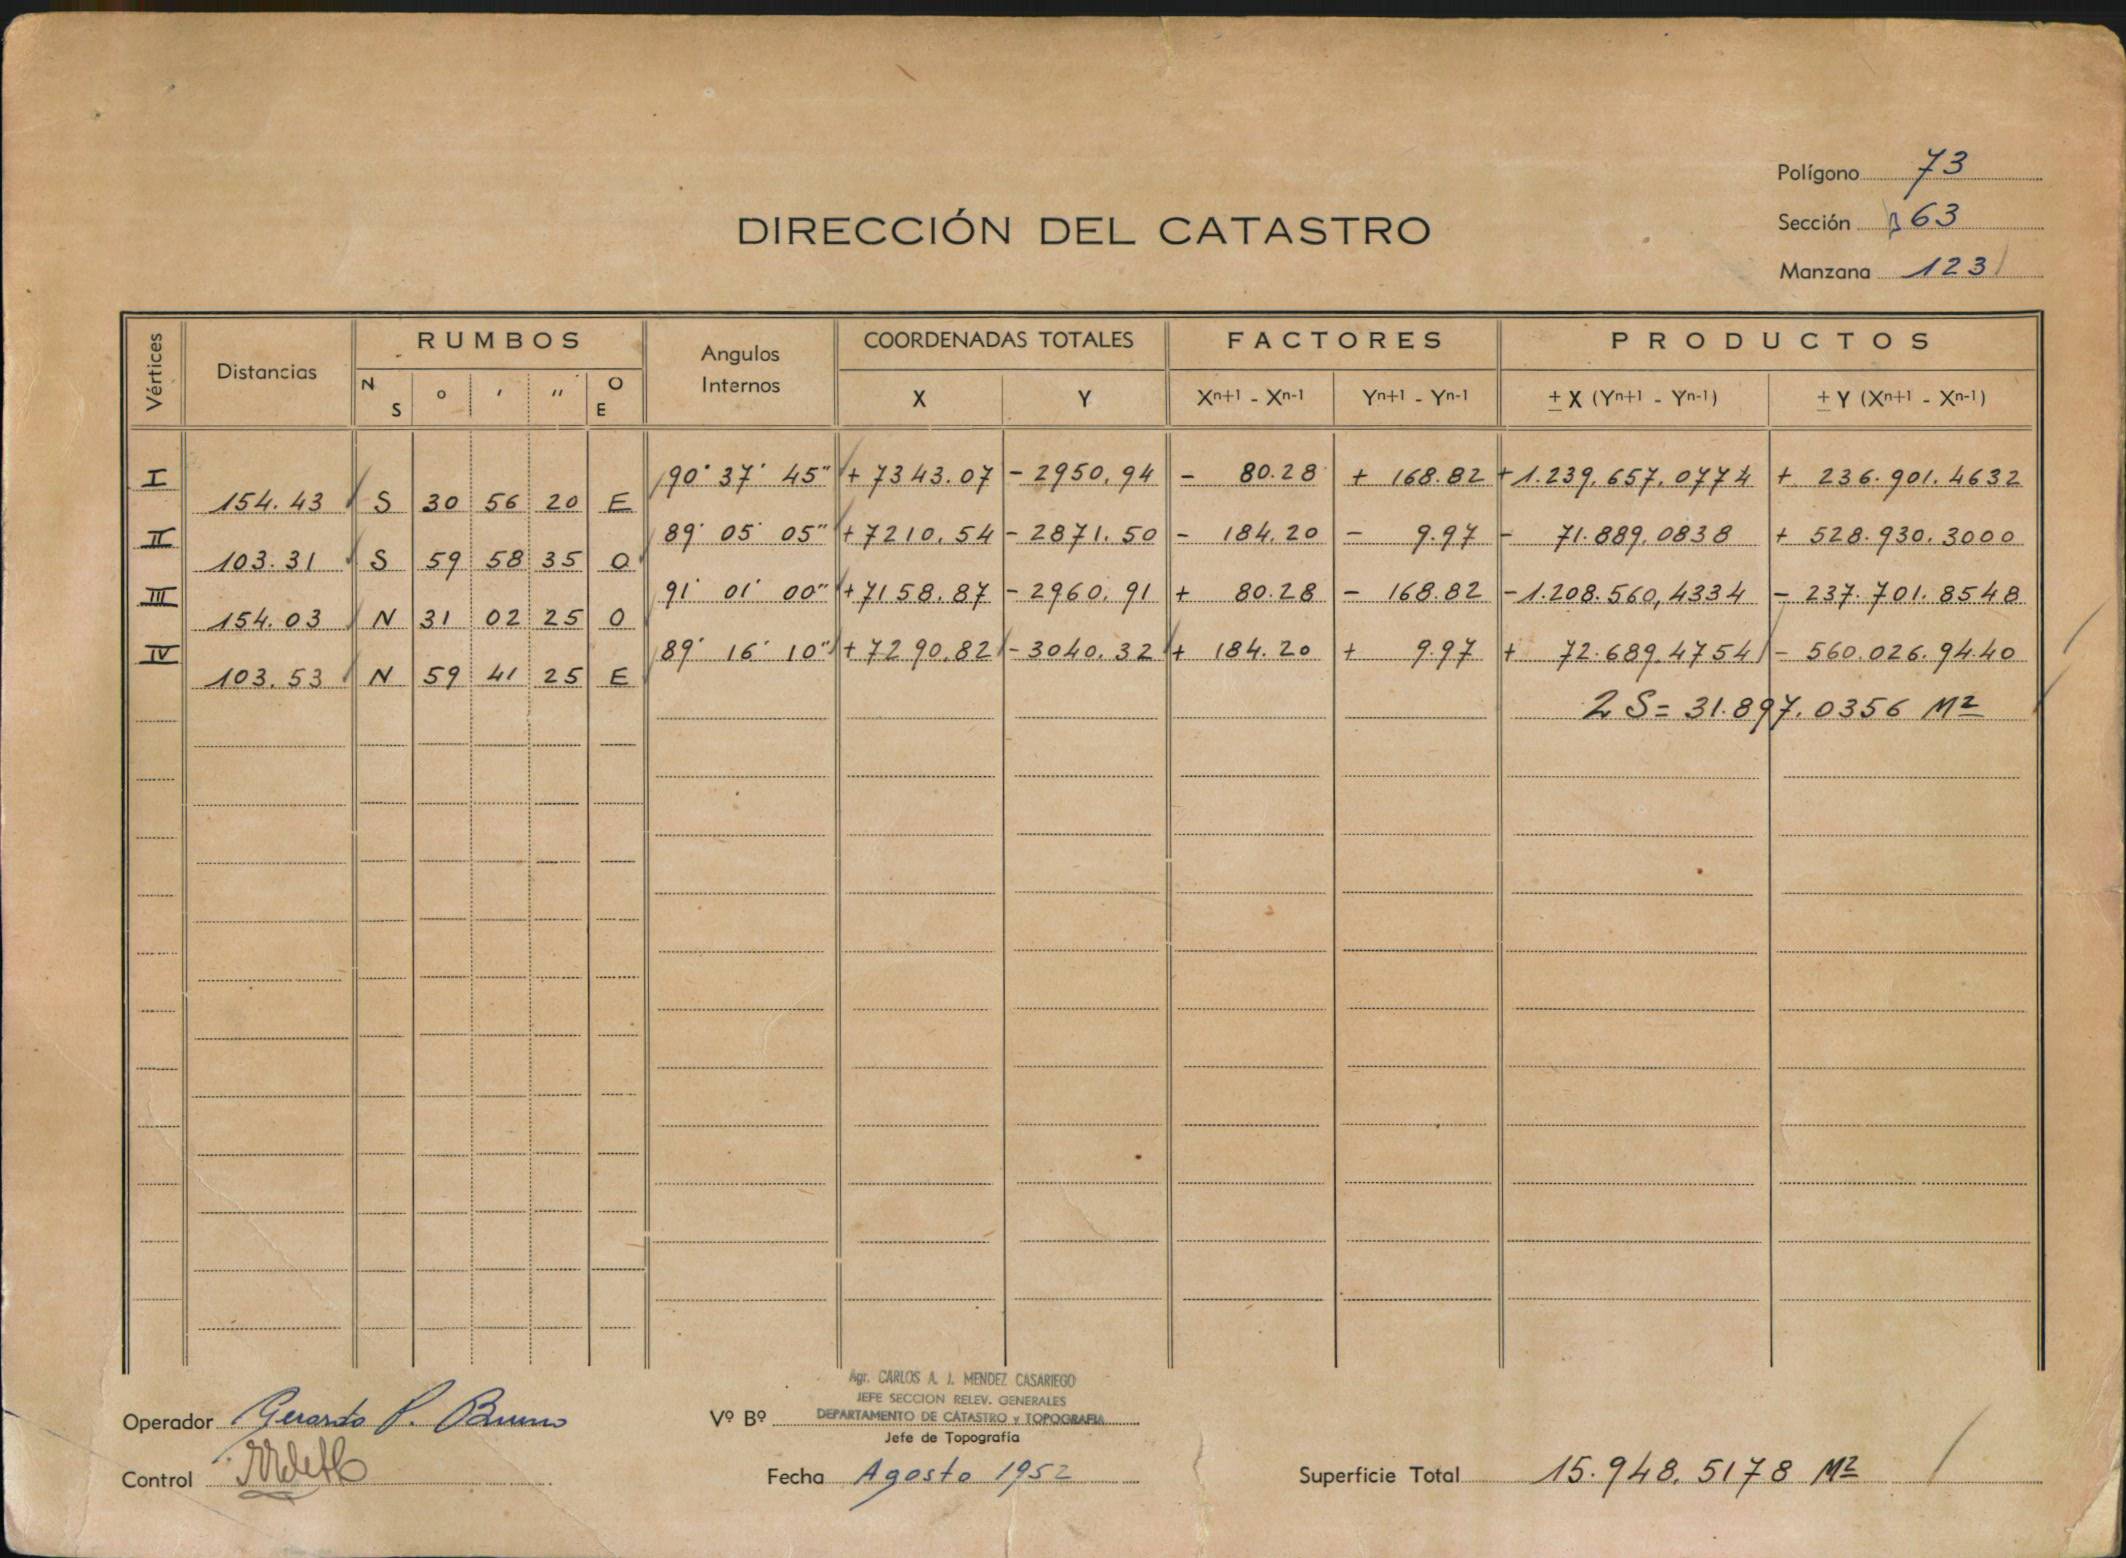 Polígono 73
Sección 63
Manzana 123
DIRECCIÓN DEL CATASTRO
Vértices Distancias RUMBOS Angulos Internos COORDENADAS TOTALES FACTORES PRODUCTOS
N S o ' " O E X Y Xn+1 - Xn-1 Yn+1 - Yn-1 ± X (Yn+1 - Yn-1) ± Y (Xn+1 - Xn-1)
I 90° 37' 45" + 7343.07 - 2950.94 - 80.28 + 168.82 + 1.239.657.0774 + 236.901.4632
154.43 S 30 56 20 E
II 89° 05' 05" + 7210.54 - 2871.50 - 184.20 - 9.97 - 71.889.0838 + 528.930.3000
103.31 S 59 58 35 O
III 91° 01' 00" + 7158.87 - 2960.91 + 80.28 - 168.82 - 1.208.560,4334 - 237.701.8548
154.03 N 31 02 25 O
IV 89° 16' 10" + 7290.82 - 3040.32 + 184.20 + 9.97 + 72.689.4754 - 560.026.9440
103.53 N 59 41 25 E
2 S = 31.897.0356 M2
Agr. CARLOS A. J. MENDEZ CASARIEGO
JEFE SECCION RELEV. GENERALES
DEPARTAMENTO DE CATASTRO y TOPOGRAFIA
Operador Gerardo P. Bruno Vº Bº
Jefe de Topografía
Control Fecha Agosto 1952 Superficie Total 15.948.5178 M2